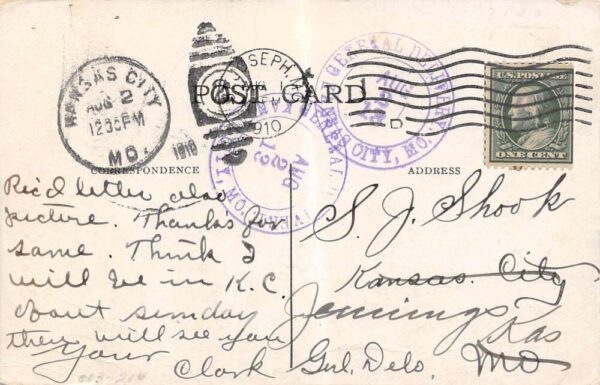 KANSAS CITY
AUG 2
12:30PM
MO.
1910
ST. JOSEPH, MO.
1910
GENERAL DELIVERY
AUG
KANSAS CITY, MO.
AUG
2
12
D
U.S. POSTAGE
ONE CENT
POST CARD
CORRESPONDENCE
ADDRESS
Rec'd letter also
picture. Thanks for
same. Think I
will be in K.C.
about sunday
then will see you
Your
Clark
S. J. Shook
Kansas City
Jennings
Kas
Genl. Delv.
Mo
003-214